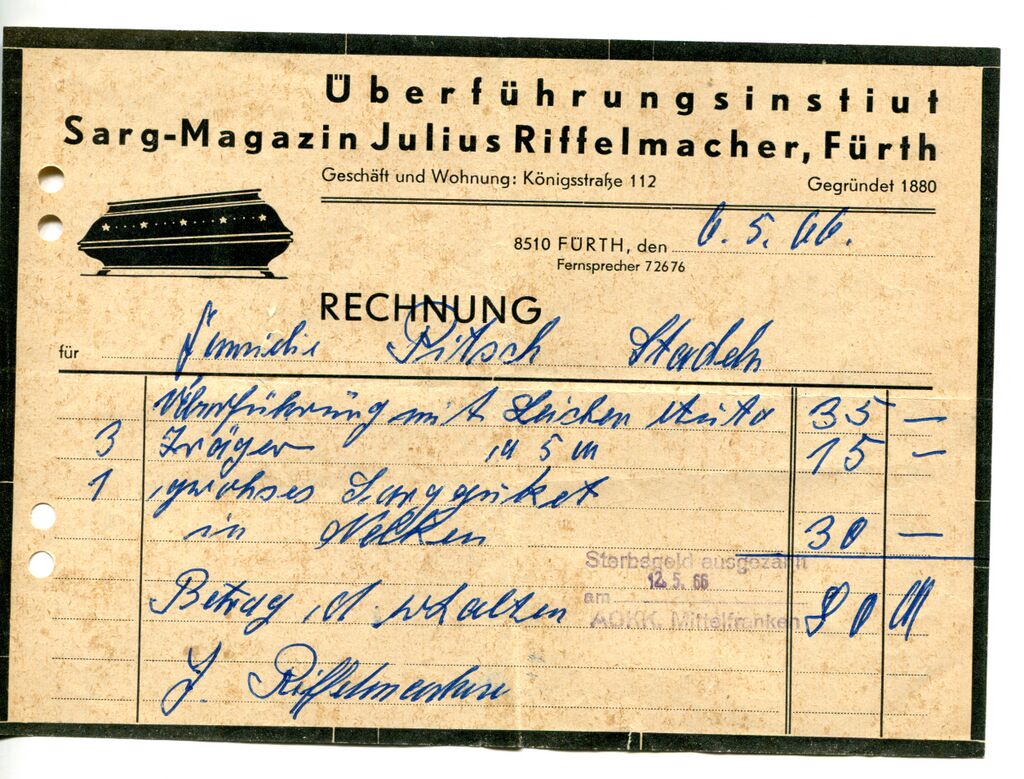 Überführungsinstiut
Sarg-Magazin Julius Riffelmacher, Fürth
Geschäft und Wohnung: Königsstraße 112
Gegründet 1880
8510 FÜRTH, den 6. 5. 66.
Fernsprecher 72676
RECHNUNG
für Familie Pitsch Stadeln
Überführung mit Leichen Auto 35 —
3 Träger a 5 M 15 —
1 grohses Sargbuket
in Nelken 30 —
Sterbegeld ausgezahlt
12. 5. 66
am
AOKK. Mittelfranken
Betrag d. erhalten 80 M
J. Riffelmacher